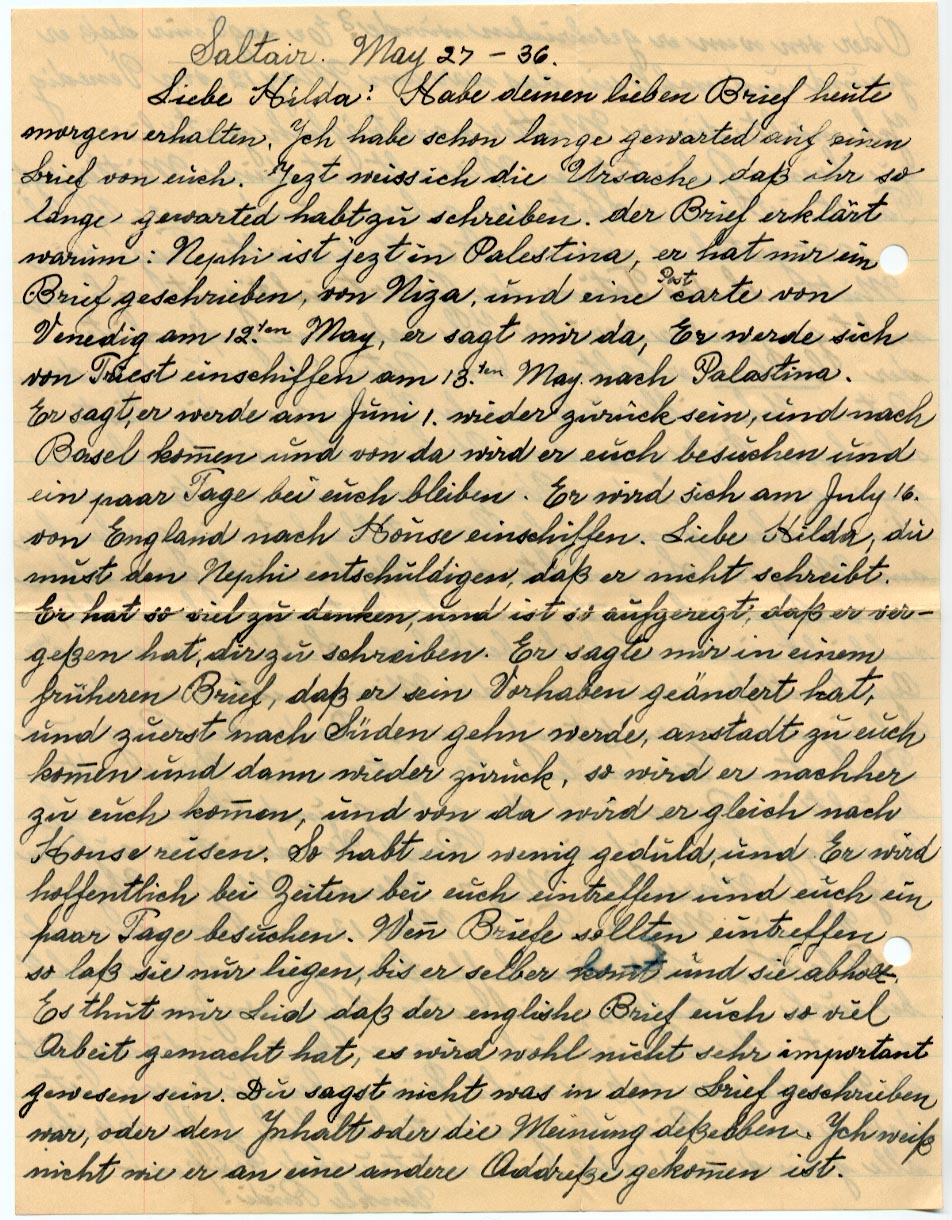 Saltair. May 27 – 36.
Liebe Hilda! Habe deinen lieben Brief heute
morgen erhalten. Ich habe schon lange gewarted auf einen
Brief von euch. Jezt weiss ich die Ursache daß ihr so
lange gewarted habt zu schreiben. der Brief erklärt
warum: Nephi ist jezt in Palestina, er hat mir ein
Brief geschrieben, von Niza, und eine Post carte von
Venedig am 12.ten May, er sagt mir da, Er werde sich
von Triest einschiffen am 13.ten May. nach Palastina.
Er sagt, er werde am Juni 1. wieder zurück sein, und nach
Basel kom̅en und von da wird er euch besuchen und
ein paar Tage bei euch bleiben. Er wird sich am July 16.
von England nach House einschiffen. Liebe Hilda, du
must den Nephi entschuldigen, daß er nicht schreibt.
Er hat so viel zu denken, und ist so aufgeregt, daß er ver-
geßen hat, dir zu schreiben. Er sagte mir in einem
früheren Brief, daß er sein Vorhaben geändert hat,
und zuerst nach Süden gehn werde, anstadt zu euch
kom̅en und dann wieder zurück, so wird er nachher
zu euch kom̅en, und von da wird er gleich nach
House reisen. So habt ein wenig geduld, und Er wird
hoffentlich bei Zeiten bei euch eintreffen und euch ein
paar Tage besuchen. Wen̅ Briefe sollten eintreffen
so laß sie nur liegen, bis er selber kom̅t und sie abholt.
Es thut mir Leid daß der englishe Brief euch so viel
Arbeit gemacht hat, es wird wohl nicht sehr important
gewesen sein. Du sagst nicht was in dem Brief geschrieben
war, oder den Inhalt oder die Meinung deßelben. Ich weiß
nicht wie er an eine andere Addreße gekom̅en ist.